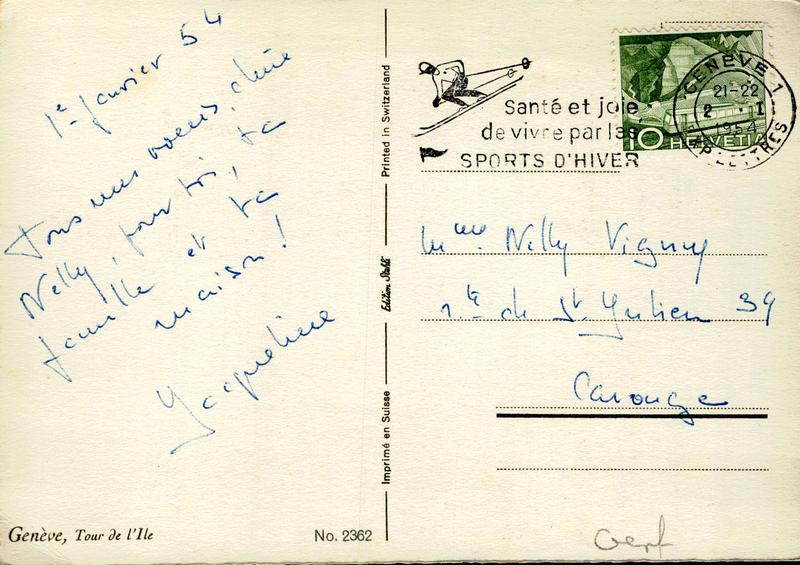 1er janvier 54
Tous mes voeux, chère
Nelly, pour toi, ta
famille et ta
maison !
Jacqueline
Genève, Tour de l'Ile
No. 2362
Printed in Switzerland
Edition Stahli
Imprimé en Suisse
Santé et joie
de vivre par les
SPORTS D'HIVER
10 HELVETIA
GENÈVE 1
21-22
2 · I
1954
EXP. LETTRES
Mme Nelly Vigny
rte de St. Julien 39
Carouge